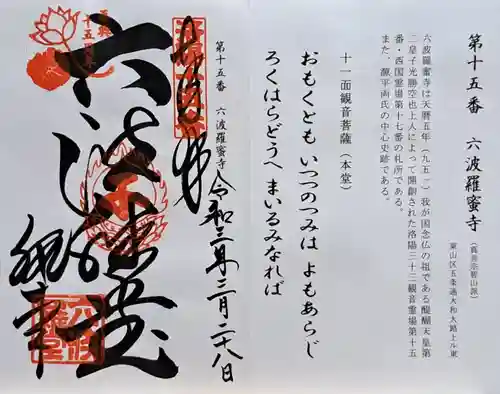 第十五番　六波羅蜜寺
(真言宗智山派)
東山区五条通大和大路上ル東
六波羅蜜寺は天暦五年(九五一)我が国念仏の祖である醍醐天皇第
二皇子光勝空也上人によって開創された洛陽三十三観音霊場第十五
番・西国霊場第十七番の札所である。
また、源平両氏の中心史跡である。
十一面観音菩薩(本堂)
おもくとも　いつつのつみは　よもあらじ
ろくはらどうへ　まいるみなれば
第十五番　六波羅蜜寺
令和三年三月二十八日
奉拝
六波羅蜜寺